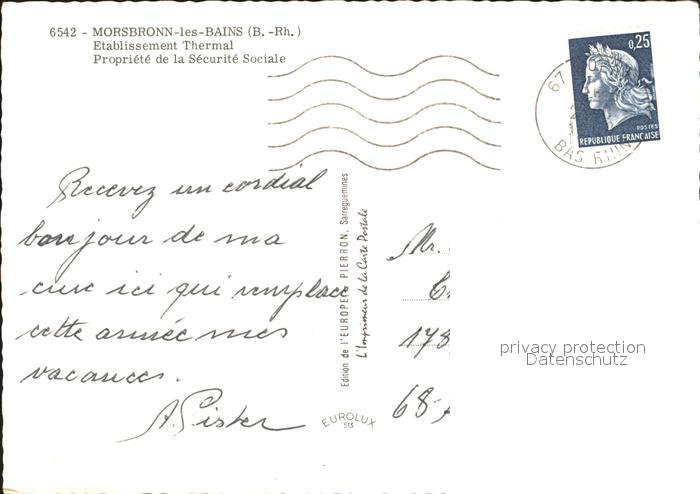 6542 - MORSBRONN-les-BAINS (B.-Rh.)
Etablissement Thermal
Propriété de la Sécurité Sociale
0,25
POSTES
REPUBLIQUE FRANÇAISE
67
BAS RHIN
Recevez un cordial
bonjour de ma
cure ici qui remplace
cette année mes
vacances.
A. Pister
Edition de l'EUROPE, PIERRON, Sarreguemines
L'Imprimeur de la Carte Postale
EUROLUX
513
Mr.
178
68-
privacy protection
Datenschutz